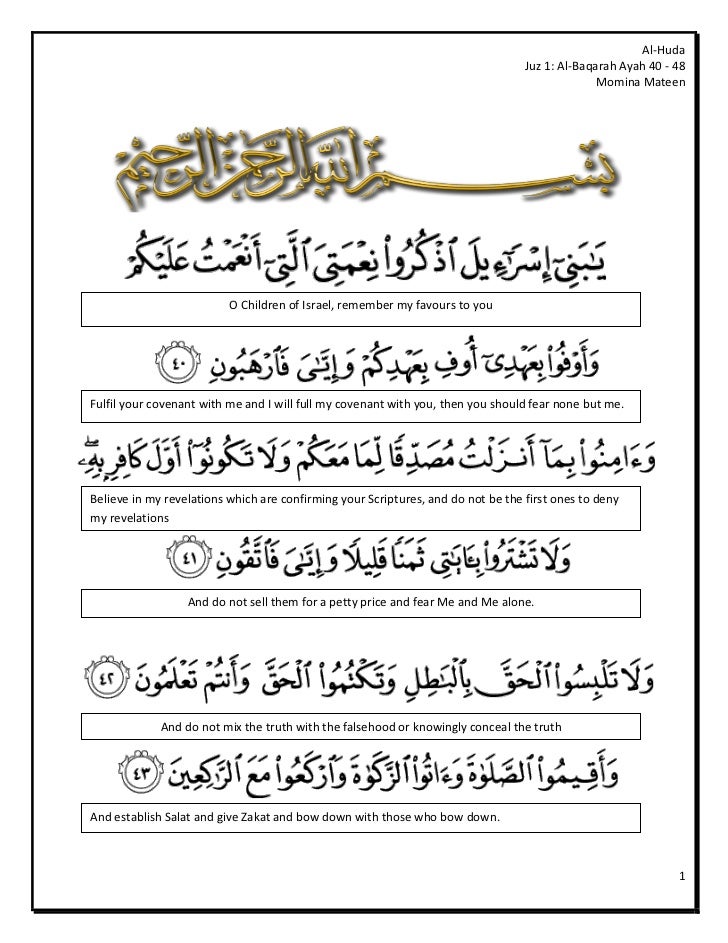 Al-Huda
Juz 1: Al-Baqarah Ayah 40 - 48
Momina Mateen
بِسْمِ اللَّهِ الرَّحْمَٰنِ الرَّحِيمِ
يَٰبَنِىٓ إِسْرَٰٓءِيلَ ٱذْكُرُوا۟ نِعْمَتِىَ ٱلَّتِىٓ أَنْعَمْتُ عَلَيْكُمْ
O Children of Israel, remember my favours to you
وَأَوْفُوا۟ بِعَهْدِىٓ أُوفِ بِعَهْدِكُمْ وَإِيَّٰىَ فَٱرْهَبُونِ ٤٠
Fulfil your covenant with me and I will full my covenant with you, then you should fear none but me.
وَءَامِنُوا۟ بِمَآ أَنزَلْتُ مُصَدِّقًا لِّمَا مَعَكُمْ وَلَا تَكُونُوٓا۟ أَوَّلَ كَافِرٍۭ بِهِۦ ۖ
Believe in my revelations which are confirming your Scriptures, and do not be the first ones to deny
my revelations
وَلَا تَشْتَرُوا۟ بِـَٔايَٰتِى ثَمَنًا قَلِيلًا وَإِيَّٰىَ فَٱتَّقُونِ ٤١
And do not sell them for a petty price and fear Me and Me alone.
وَلَا تَلْبِسُوا۟ ٱلْحَقَّ بِٱلْبَٰطِلِ وَتَكْتُمُوا۟ ٱلْحَقَّ وَأَنتُمْ تَعْلَمُونَ ٤٢
And do not mix the truth with the falsehood or knowingly conceal the truth
وَأَقِيمُوا۟ ٱلصَّلَوٰةَ وَءَاتُوا۟ ٱلزَّكَوٰةَ وَٱرْكَعُوا۟ مَعَ ٱلرَّٰكِعِينَ ٤٣
And establish Salat and give Zakat and bow down with those who bow down.
1